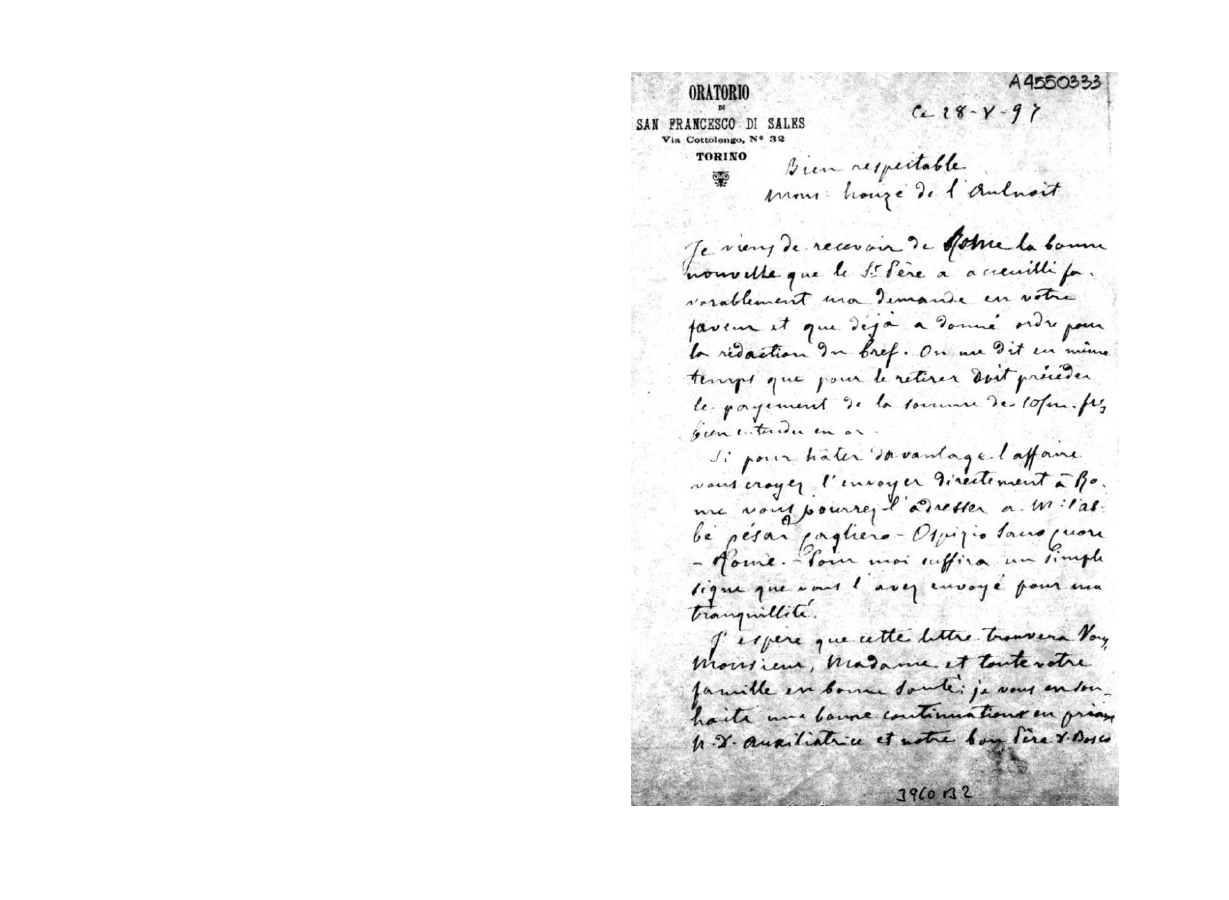 A4550333
ORATORIO
DI
SAN FRANCESCO DI SALES
Via Cottolengo, Nº 32
TORINO
Ce 28-V-97
Bien respectable
Mons. houzé de l'Aulnoit
Je viens de recevoir de Rome la bonne
nouvelle que le St Père a accueilli fa-
vorablement ma demande en votre
faveur et que déjà a donné ordre pour
la rédaction du bref. On me dit en même
temps que pour le retirer doit précéder
le payement de la somme de frs
bien entendu en or.
Si pour hâter davantage l'affaire
vous croyez l'envoyer directement à Ro-
me vous pourrez l'adresser a M. l'ab-
bé César Cagliero - Ospizio Sacro Cuore
- Rome. - Pour moi suffira un simple
signe que vous l'avez envoyé pour ma
tranquillité.
J'espère que cette lettre trouvera Vous,
Monsieur, Madame et toute votre
famille en bonne santé: je vous en sou-
haite une bonne continuation en priant
N.D. Auxiliatrice et notre bon Père D. Bosco
3960 B2